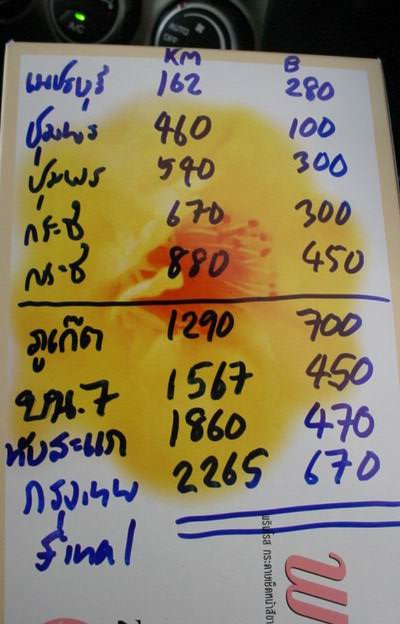 KM B
เพชรบุรี 162 280
ชุมพร 460 100
ชุมพร 540 300
กระบี่ 670 300
กระบี่ 880 450
ภูเก็ต 1290 700
บน.7 1567 450
ทับสะแก 1860 470
กรุงเทพ 2265 670
Final
A/C
AUTO
OFF